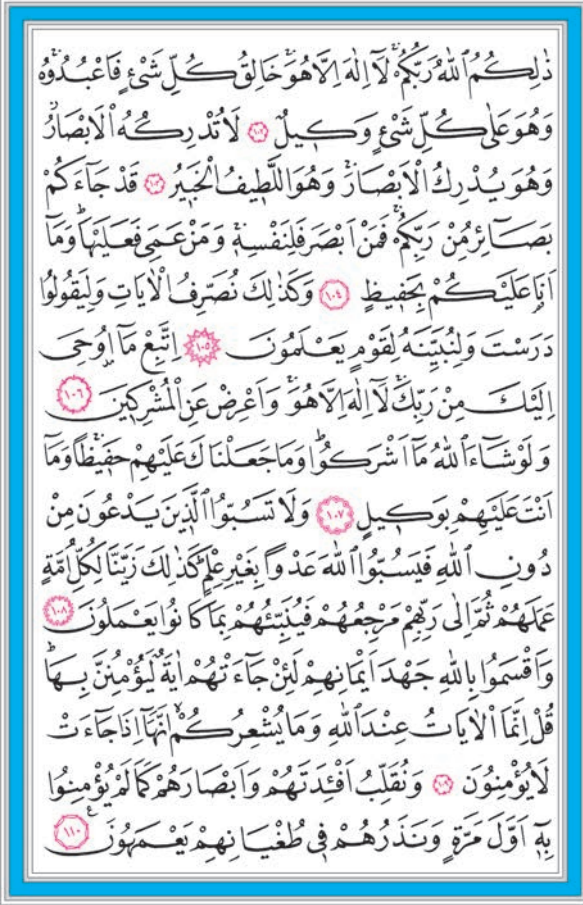 ذٰلِكُمُ اللّٰهُ رَبُّكُمْۚ لَٓا اِلٰهَ اِلَّا هُوَۚ خَالِقُ كُلِّ شَيْءٍ فَاعْبُدُوهُۚ
وَهُوَ عَلٰى كُلِّ شَيْءٍ وَكٖيلٌ ﴿١٠٢﴾ لَا تُدْرِكُهُ الْاَبْصَارُؗ
وَهُوَ يُدْرِكُ الْاَبْصَارَۚ وَهُوَ اللَّطٖيفُ الْخَبٖيرُ ﴿١٠٣﴾ قَدْ جَٓاءَكُمْ
بَصَٓائِرُ مِنْ رَبِّكُمْۚ فَمَنْ اَبْصَرَ فَلِنَفْسِهٖۚ وَمَنْ عَمِيَ فَعَلَيْهَاؕ وَمَٓا
اَنَا۬ عَلَيْكُمْ بِحَفٖيظٍ ﴿١٠٤﴾ وَكَذٰلِكَ نُصَرِّفُ الْاٰيَاتِ وَلِيَقُولُوا
دَرَسْتَ وَلِنُبَيِّنَهُ لِقَوْمٍ يَعْلَمُونَ ﴿١٠٥﴾ اِتَّبِعْ مَٓا اُو۫حِيَ
اِلَيْكَ مِنْ رَبِّكَۚ لَٓا اِلٰهَ اِلَّا هُوَۚ وَاَعْرِضْ عَنِ الْمُشْرِكٖينَ ﴿١٠٦﴾
وَلَوْ شَٓاءَ اللّٰهُ مَٓا اَشْرَكُواؕ وَمَا جَعَلْنَاكَ عَلَيْهِمْ حَفٖيظًاۚ وَمَٓا
اَنْتَ عَلَيْهِمْ بِوَكٖيلٍ ﴿١٠٧﴾ وَلَا تَسُبُّوا الَّذٖينَ يَدْعُونَ مِنْ
دُونِ اللّٰهِ فَيَسُبُّوا اللّٰهَ عَدْوًا بِغَيْرِ عِلْمٍؕ كَذٰلِكَ زَيَّنَّا لِكُلِّ اُمَّةٍ
عَمَلَهُمْࣕ ثُمَّ اِلٰى رَبِّهِمْ مَرْجِعُهُمْ فَيُنَبِّئُهُمْ بِمَا كَانُوا يَعْمَلُونَ ﴿١٠٨﴾
وَاَقْسَمُوا بِاللّٰهِ جَهْدَ اَيْمَانِهِمْ لَئِنْ جَٓاءَتْهُمْ اٰيَةٌ لَيُؤْمِنُنَّ بِهَاؕ
قُلْ اِنَّمَا الْاٰيَاتُ عِنْدَ اللّٰهِ وَمَا يُشْعِرُكُمْۙ اَنَّهَٓا اِذَا جَٓاءَتْ
لَا يُؤْمِنُونَ ﴿١٠٩﴾ وَنُقَلِّبُ اَفْـِٔدَتَهُمْ وَاَبْصَارَهُمْ كَمَا لَمْ يُؤْمِنُوا
بِهٖٓ اَوَّلَ مَرَّةٍ وَنَذَرُهُمْ فٖي طُغْيَانِهِمْ يَعْمَهُونَ ﴿١١٠﴾ ع